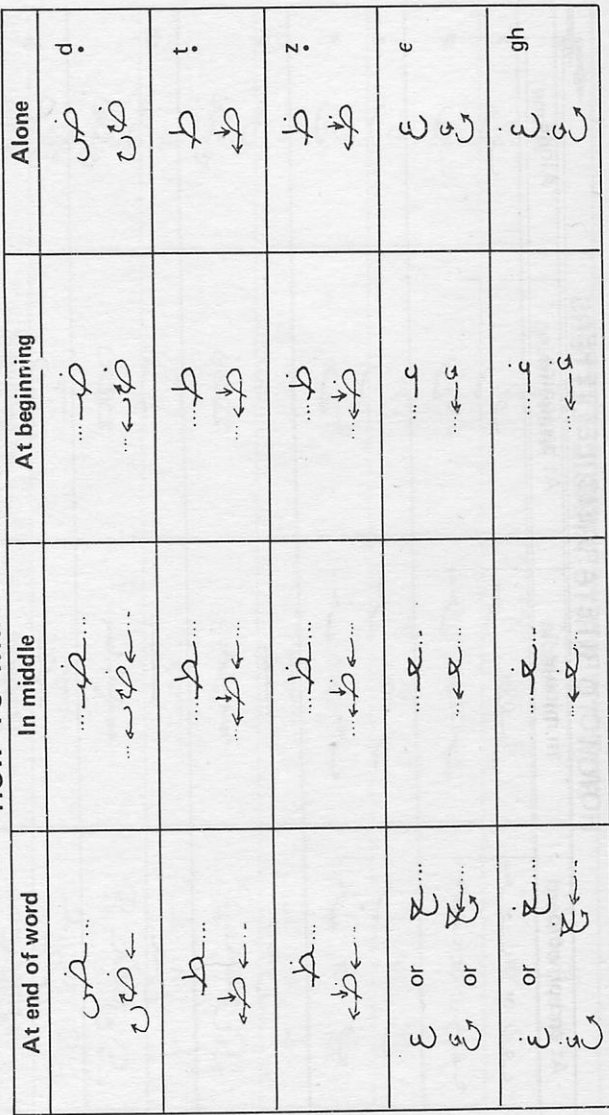 At end of word In middle At beginning Alone
ـض... ...ـضـ... ...ضـ ض ḍ
ـط... ...ـطـ... ...طـ ط ṭ
ـظ... ...ـظـ... ...ظـ ظ ẓ
ع or ـع... ...ـعـ... ...عـ ع ε
غ or ـغ... ...ـغـ... ...غـ غ gh